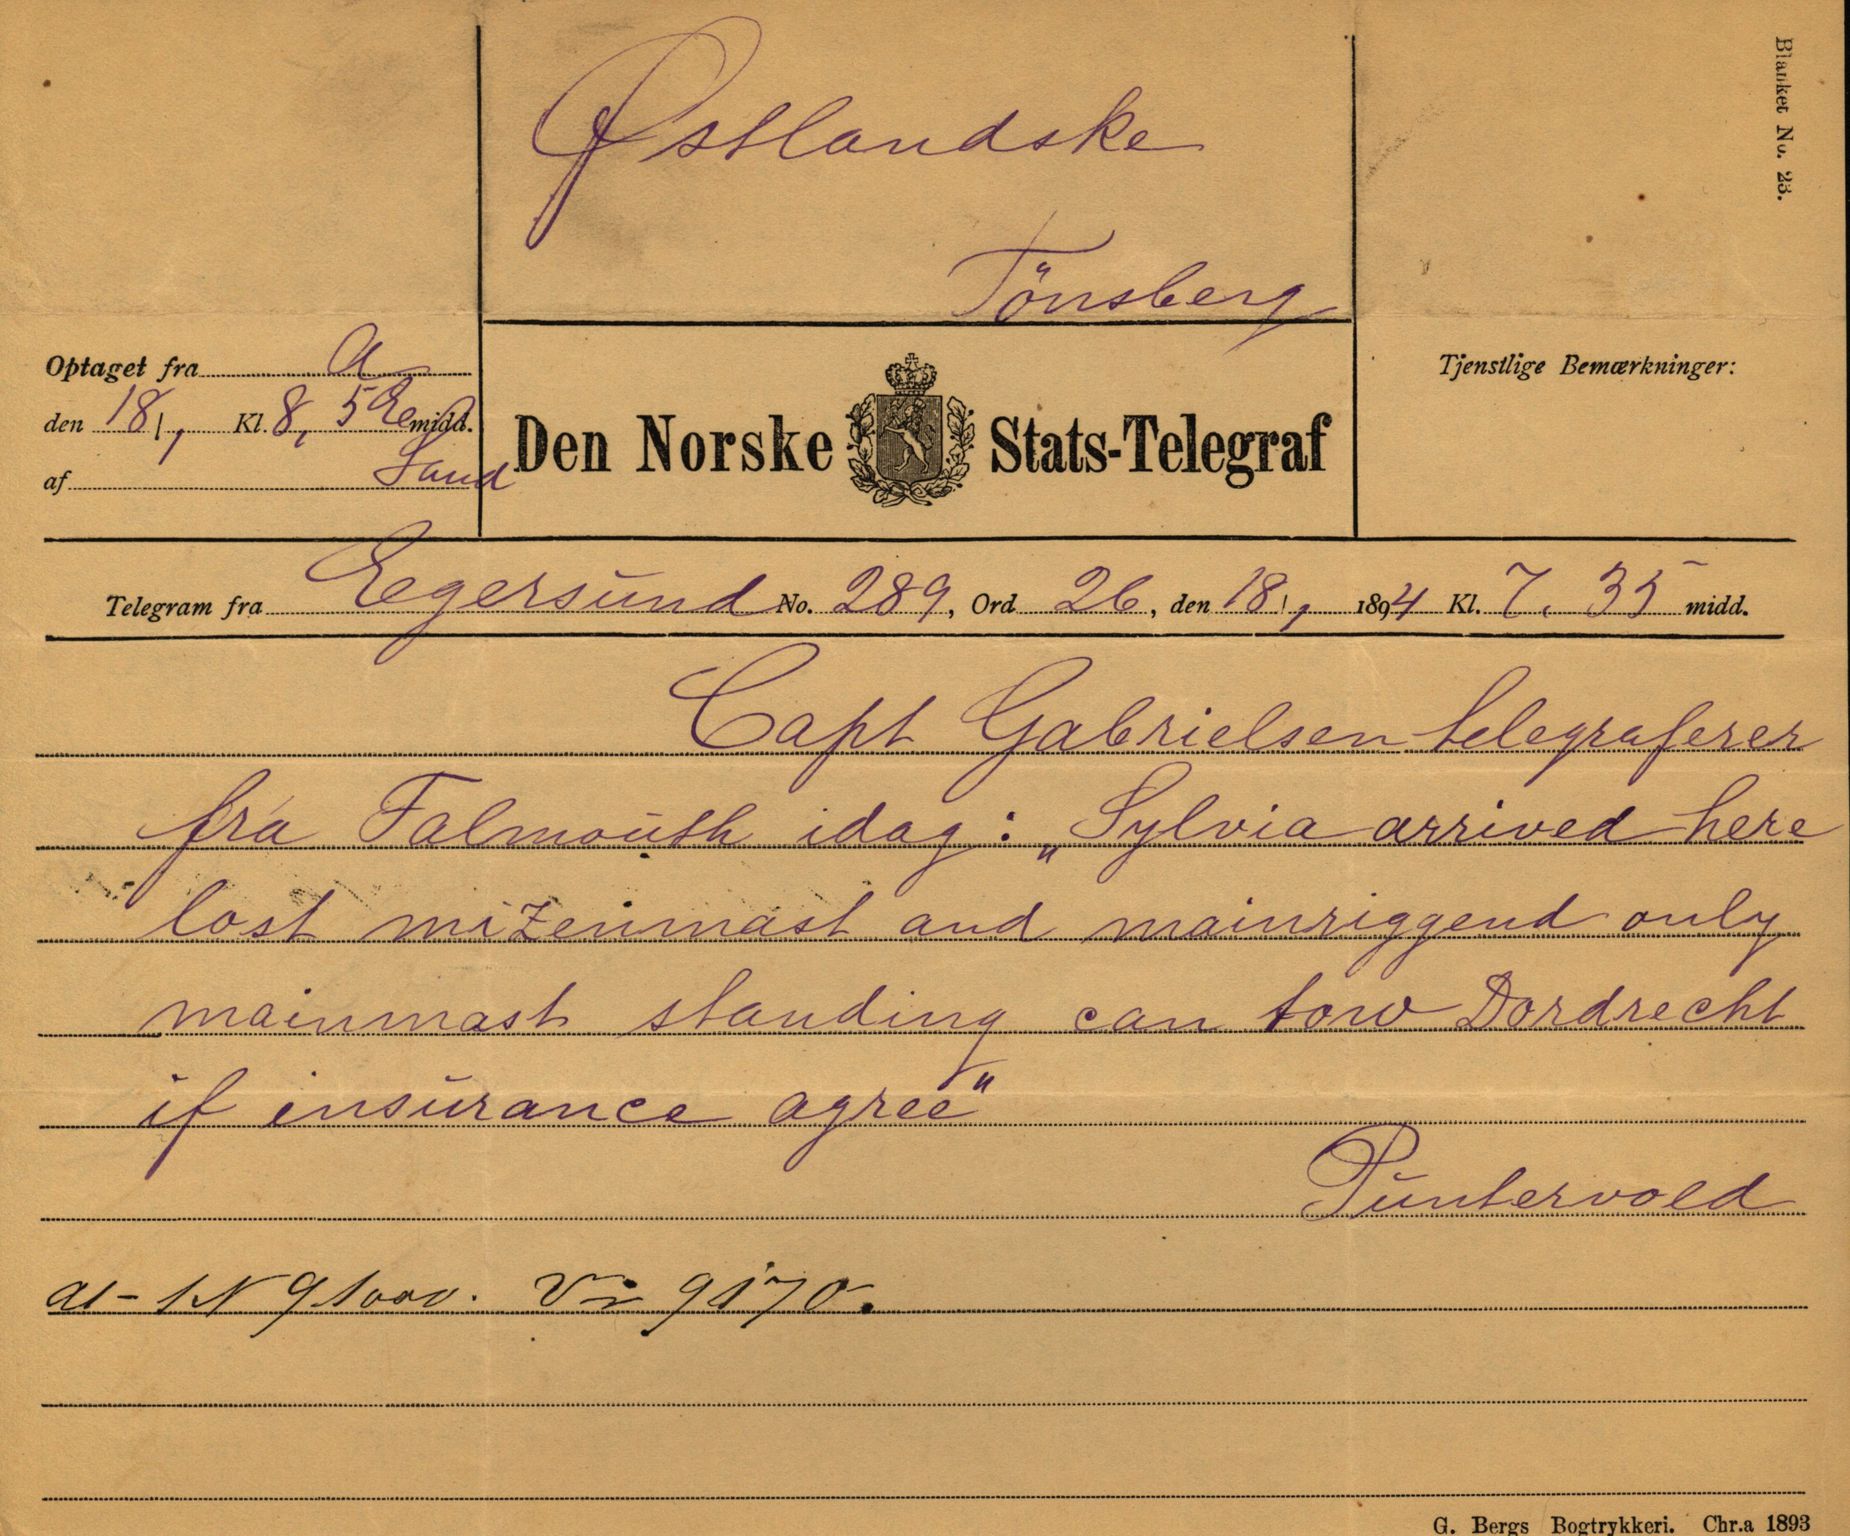 Blanket No. 23.
Østlandske
Tönsberg
Optaget fra A
den 18/1 Kl. 8, 5 Em midd.
af Sand
Den Norske Stats-Telegraf
Tjenstlige Bemærkninger:
Telegram fra Egersund No. 289, Ord 26, den 18/1 1894 Kl. 7. 35 midd.
Capt Gabrielsen telegraferer
fra Falmouth idag: „Sylvia arrived here
lost mizenmast and mainriggend only
mainmast standing can tow Dordrecht
if insurance agree"
Puntervold
9170.
G. Bergs Bogtrykkeri. Chr.a 1893